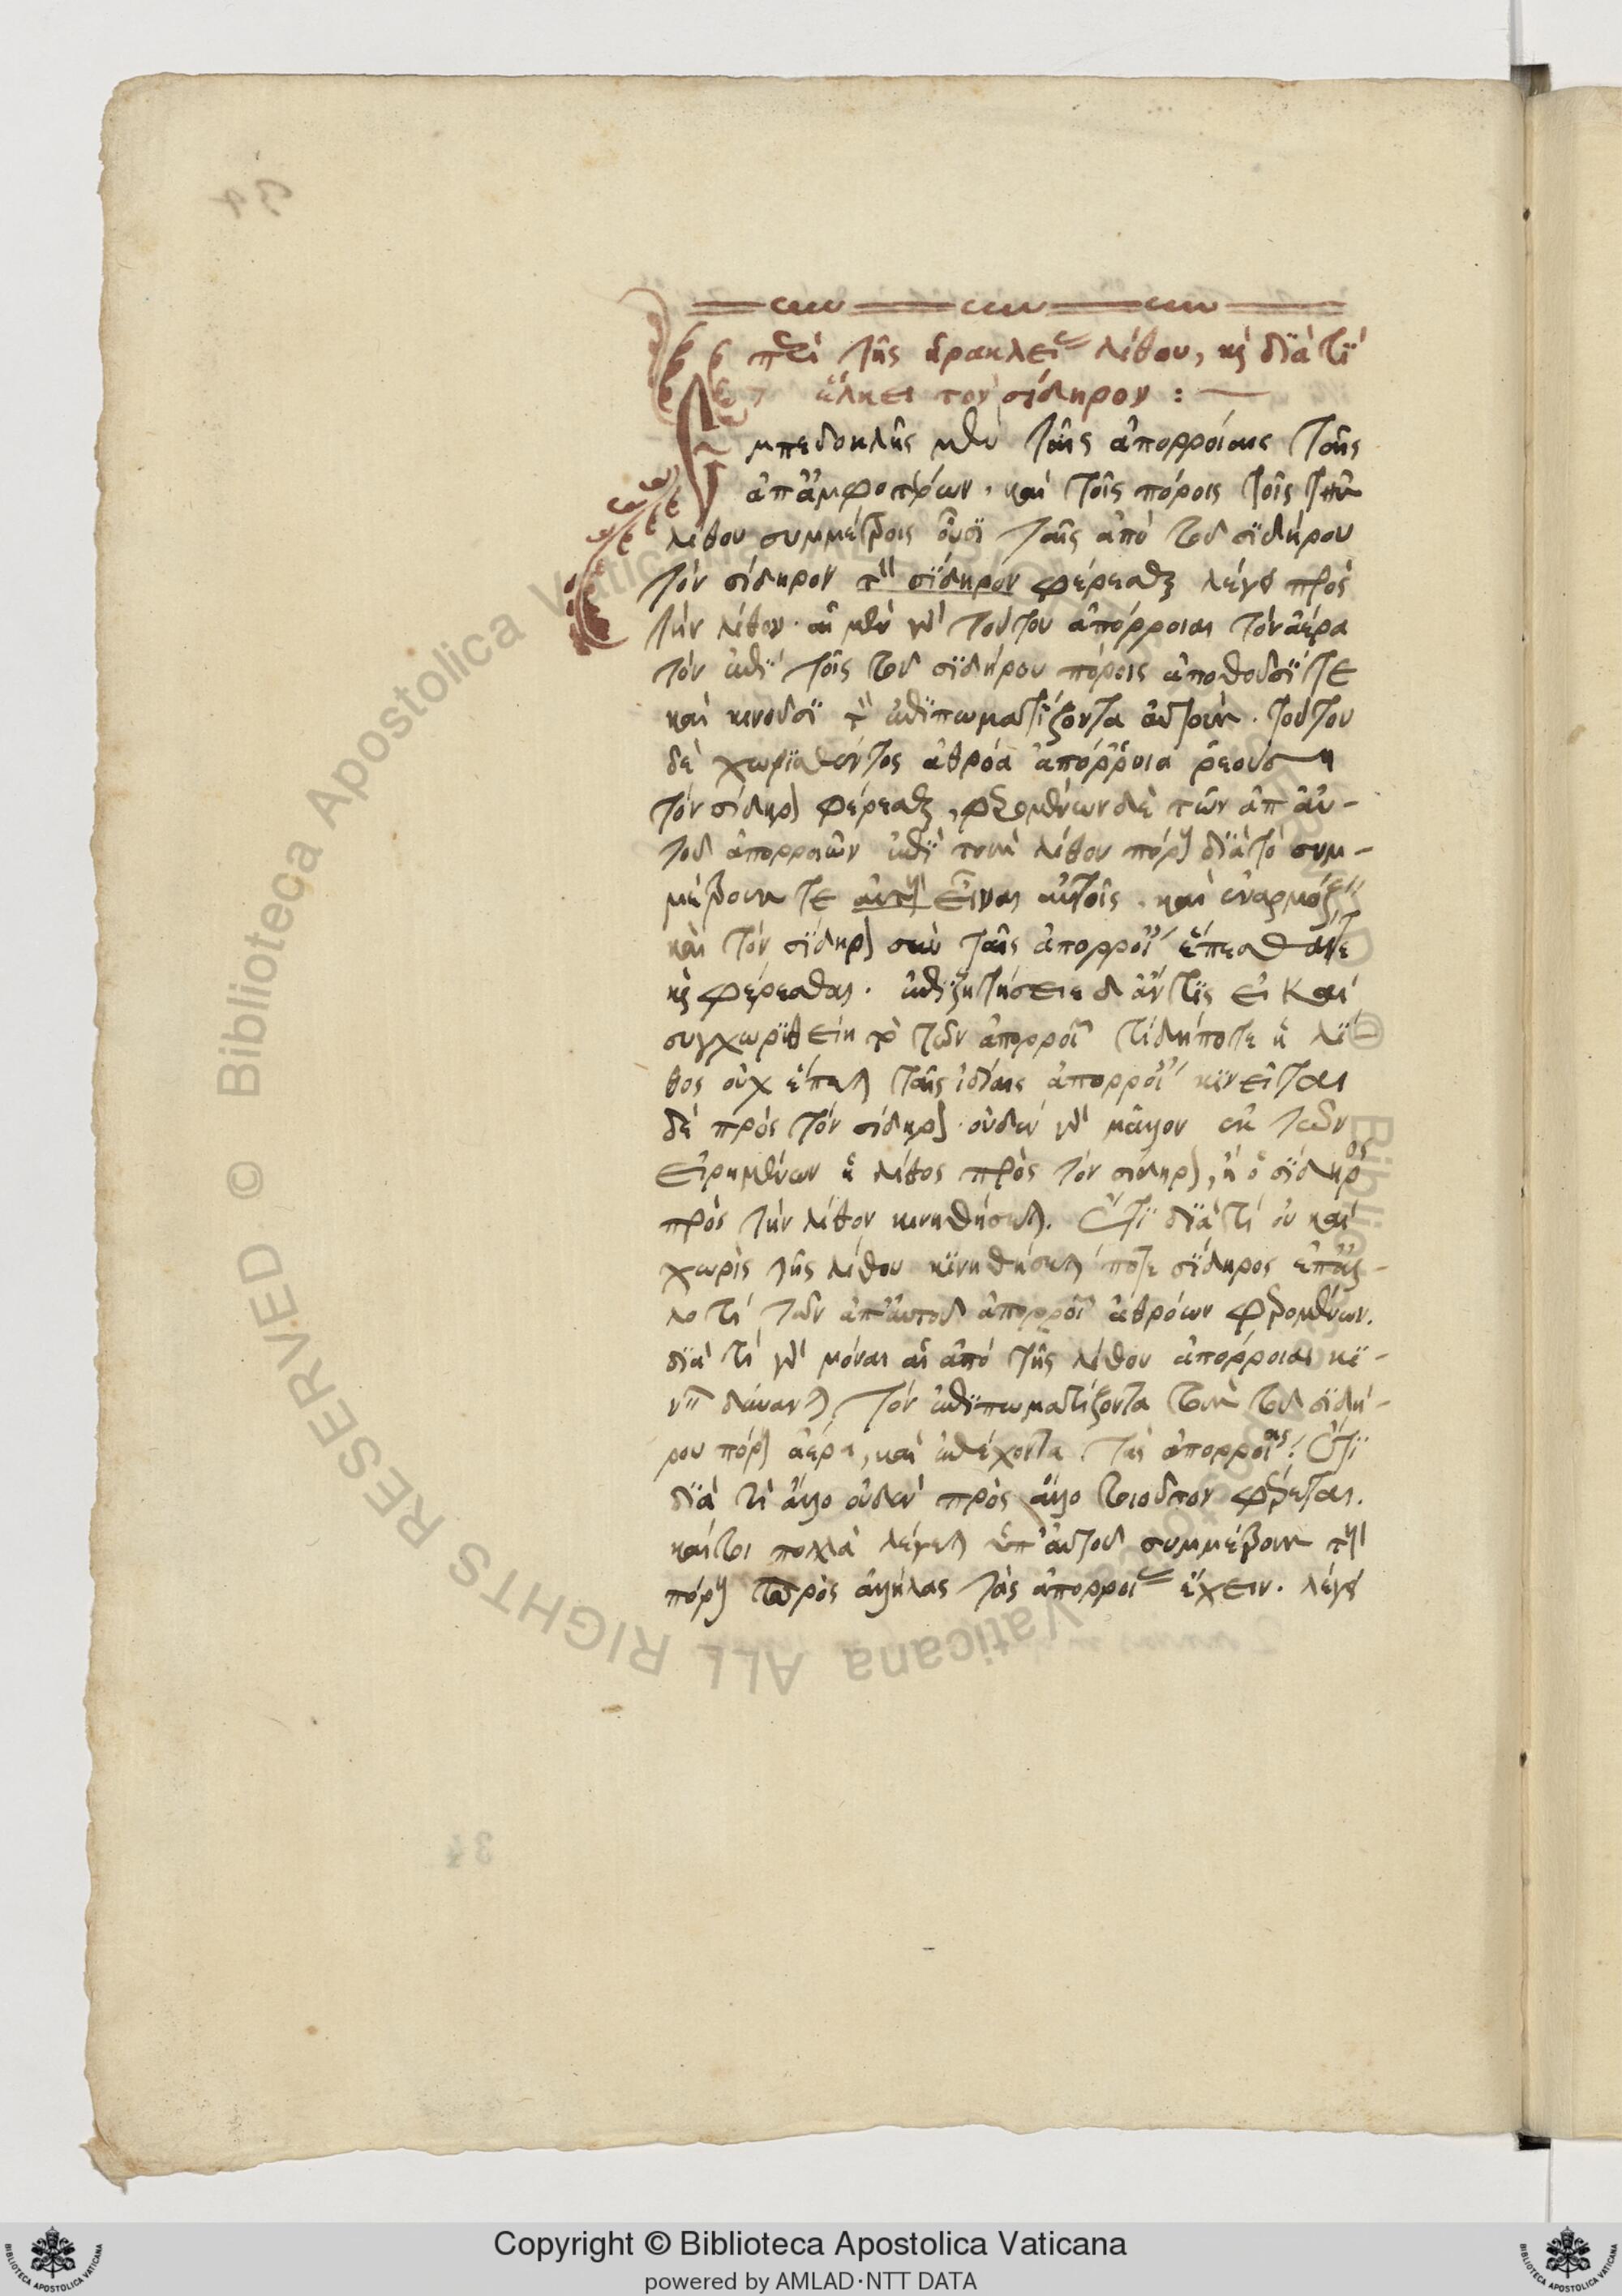 περὶ τῆς ἡρακλείας λίθου, καὶ διὰ τί
ἕλκει τὸν σίδηρον :
Ἐμπεδοκλῆς μὲν ταῖς ἀπορροίαις ταῖς
ἀπ' ἀμφοτέρων, καὶ τοῖς πόροις τοῖς τῆς
λίθου συμμέτροις οὖσι ταῖς ἀπὸ τοῦ σιδήρου
τὸν σίδηρον τὸν σίδηρον φέρεσθαι λέγει πρὸς
τὴν λίθον. αἱ μὲν γὰρ τούτου ἀπόρροιαι τὸν ἀέρα
τὸν ἐπὶ τοῖς τοῦ σιδήρου πόροις ἀποθοῦσί τε
καὶ κινοῦσι τὸν ἐπιπωματίζοντα αὐτούς. τούτου
δὲ χωρισθέντος ἀθρόα ἀπόρροια ῥεούσῃ
τὸν σίδηρον φέρεσθαι, φερομένων δὲ τῶν ἀπ' αὐ-
τοῦ ἀπορροιῶν ἐπὶ τοὺς λίθου πόρους διὰ τὸ συμ-
μέτρους τε αὐτοὺς εἶναι αὐτοῖς. καὶ ἐναρμόζειν
καὶ τὸν σίδηρον σὺν ταῖς ἀπορροίαις ἕπεσθαί τε
καὶ φέρεσθαι. ἐπιζητήσειε δ' ἄν τις εἰ καὶ
συγχωρηθείη τὸ τῶν ἀπορροιῶν τί δήποτε ἡ λί
θος οὐχ ἕπεται ταῖς ἰδίαις ἀπορροίαις κινεῖται
δὲ πρὸς τὸν σίδηρον. οὐδὲν γὰρ μᾶλλον ἐκ τῶν
εἰρημένων ἡ λίθος πρὸς τὸν σίδηρον, ἢ ὁ σίδηρος
πρὸς τὴν λίθον κινηθήσεται. Ἔτι διὰ τί οὐ καὶ
χωρὶς τῆς λίθου κινηθήσεταί ποτε σίδηρος ἐπ' ἄλ-
λο τι τῶν ἀπ' αὐτοῦ ἀπορροιῶν ἀθρόων φερομένων.
διὰ τί γὰρ μόναι αἱ ἀπὸ τῆς λίθου ἀπόρροιαι κι-
νεῖν δύνανται τὸν ἐπιπωματίζοντα τοὺς τοῦ σιδή-
ρου πόρους ἀέρα, καὶ ἐπέχοντα τὰς ἀπορροίας; Ἔτι
διὰ τί ἄλλο οὐδὲν πρὸς ἄλλο τοιοῦτον φέρεται.
καίτοι πολλὰ λέγεται ὑπ' αὐτοῦ συμμέτρους τοὺς
πόρους πρὸς ἀλλήλας τὰς ἀπορροίας ἔχειν. λέγει
Copyright © Biblioteca Apostolica Vaticana
powered by AMLAD·NTT DATA